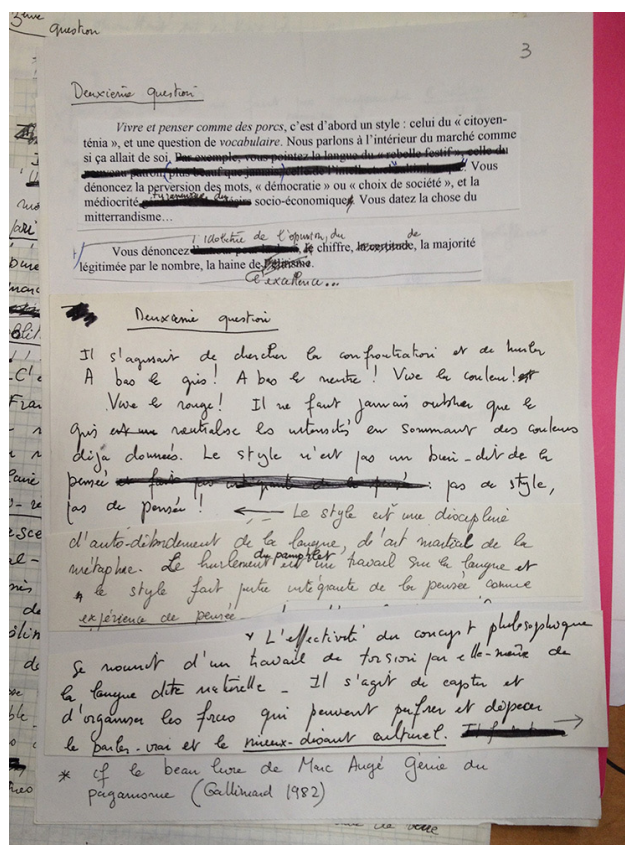 3ème question
3
Deuxième question
Vivre et penser comme des porcs, c'est d'abord un style : celui du « citoyen-
ténia », et une question de vocabulaire. Nous parlons à l'intérieur du marché comme
si ça allait de soi. Par exemple, vous pointez la langue du « rebelle festif », celle du
nouveau patron (plus beau que jamais) celle de l'intellectuel Vous
dénoncez la perversion des mots, « démocratie » ou « choix de société », et la
médiocrité socio-économique. Vous datez la chose du
mitterrandisme…
l'idolâtrie de l'opinion, du de
Vous dénoncez le chiffre, la certitude, la majorité
légitimée par le nombre, la haine de l'élitisme.
l'excellence...
Deuxième question
Il s'agissait de chercher la confrontation et de hurler
A bas le gris ! A bas le neutre ! Vive la couleur !
Vive le rouge ! Il ne faut jamais oublier que le
gris est une neutralise les intensités en sommant des couleurs
déjà données. Le style n'est pas un bien-dit de la
pensée et fait pas intégrante de la pensée : pas de style,
pas de pensée ! ← Le style est une discipline
d'auto-débordement de la langue, d'art martial de la
métaphore. Le hurlement du pamphlet est un travail sur la langue et
le style fait partie intégrante de la pensée comme
expérience de pensée.
* L'effectivité du concept philosophique
se nourrit d'un travail de torsion par elle-même de
la langue dite naturelle - Il s'agit de capter et
d'organiser les forces qui peuvent et dépecer
le parler-vrai et le mieux-disant culturel. →
* cf le beau livre de Marc Augé Génie du
paganisme (Gallimard 1982)